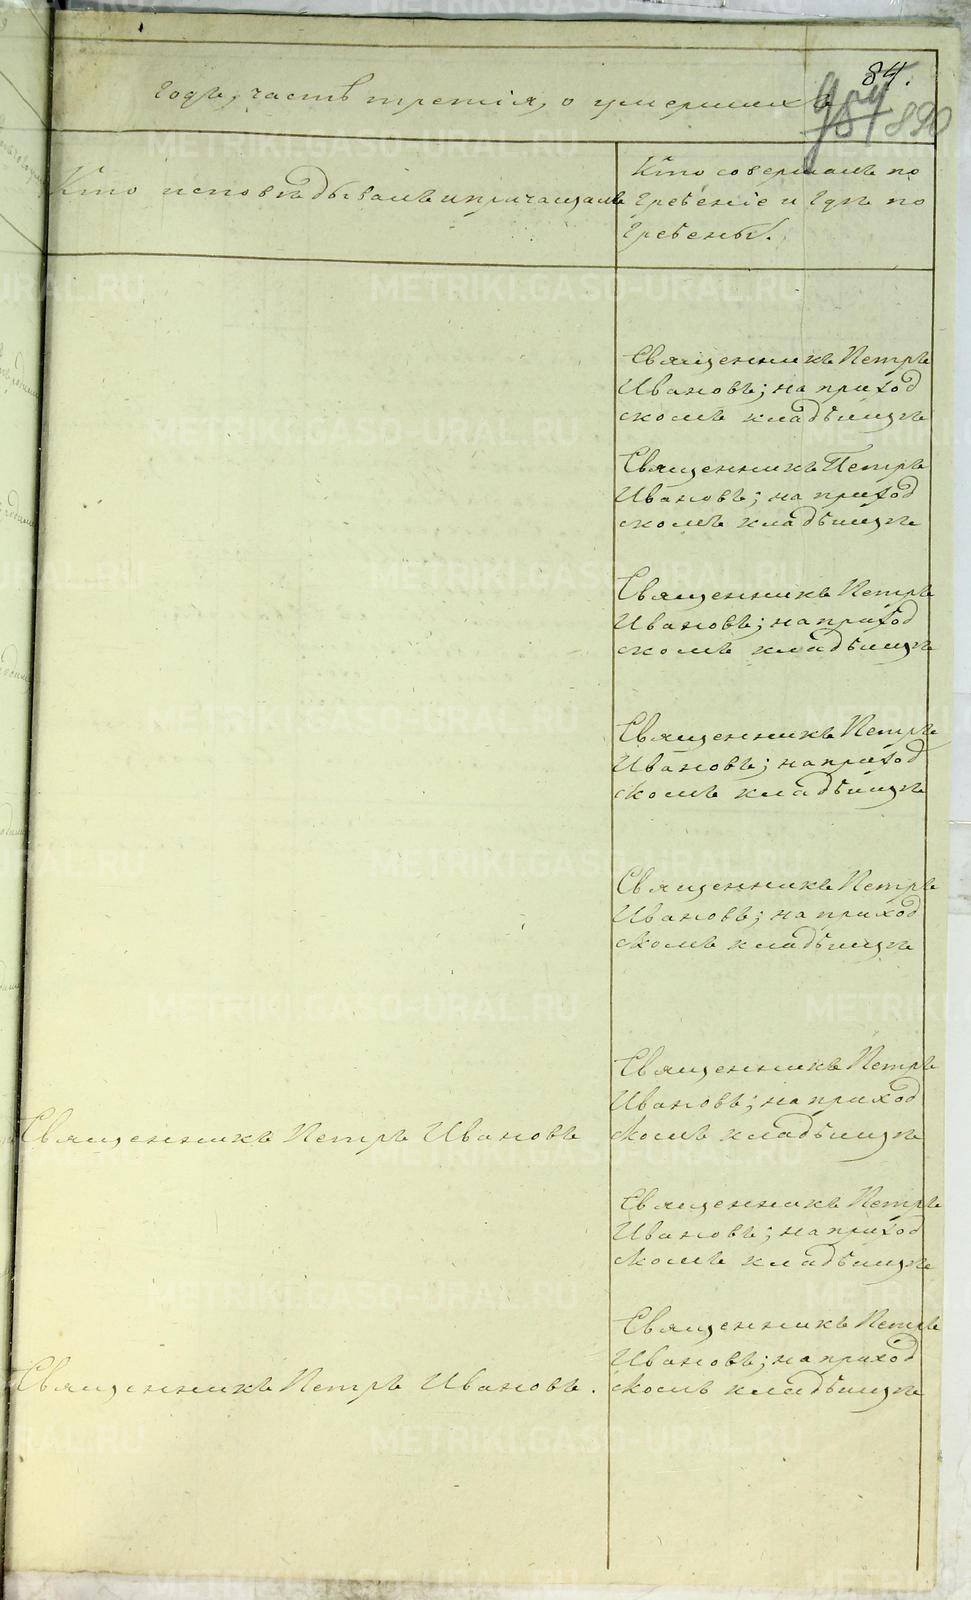 84.
890
годъ, часть третія, о умершихъ
Кто исповѣдывалъ и причащалъ
Кто совершалъ по
гребеніе и гдѣ по
гребены.
Священникъ Петръ
Ивановъ; на приход
скомъ кладбищѣ
Священникъ Петръ
Ивановъ; на приход
скомъ кладбищѣ
Священникъ Петръ
Ивановъ; на приход
скомъ кладбищѣ
Священникъ Петръ
Ивановъ; на приход
скомъ кладбищѣ
Священникъ Петръ
Ивановъ; на приход
скомъ кладбищѣ
Священникъ Петръ Ивановъ
Священникъ Петръ
Ивановъ; на приход
скомъ кладбищѣ
Священникъ Петръ
Ивановъ; на приход
скомъ кладбищѣ
Священникъ Петръ Ивановъ.
Священникъ Петръ
Ивановъ; на приход
скомъ кладбищѣ
METRIKI.GASO-URAL.RU